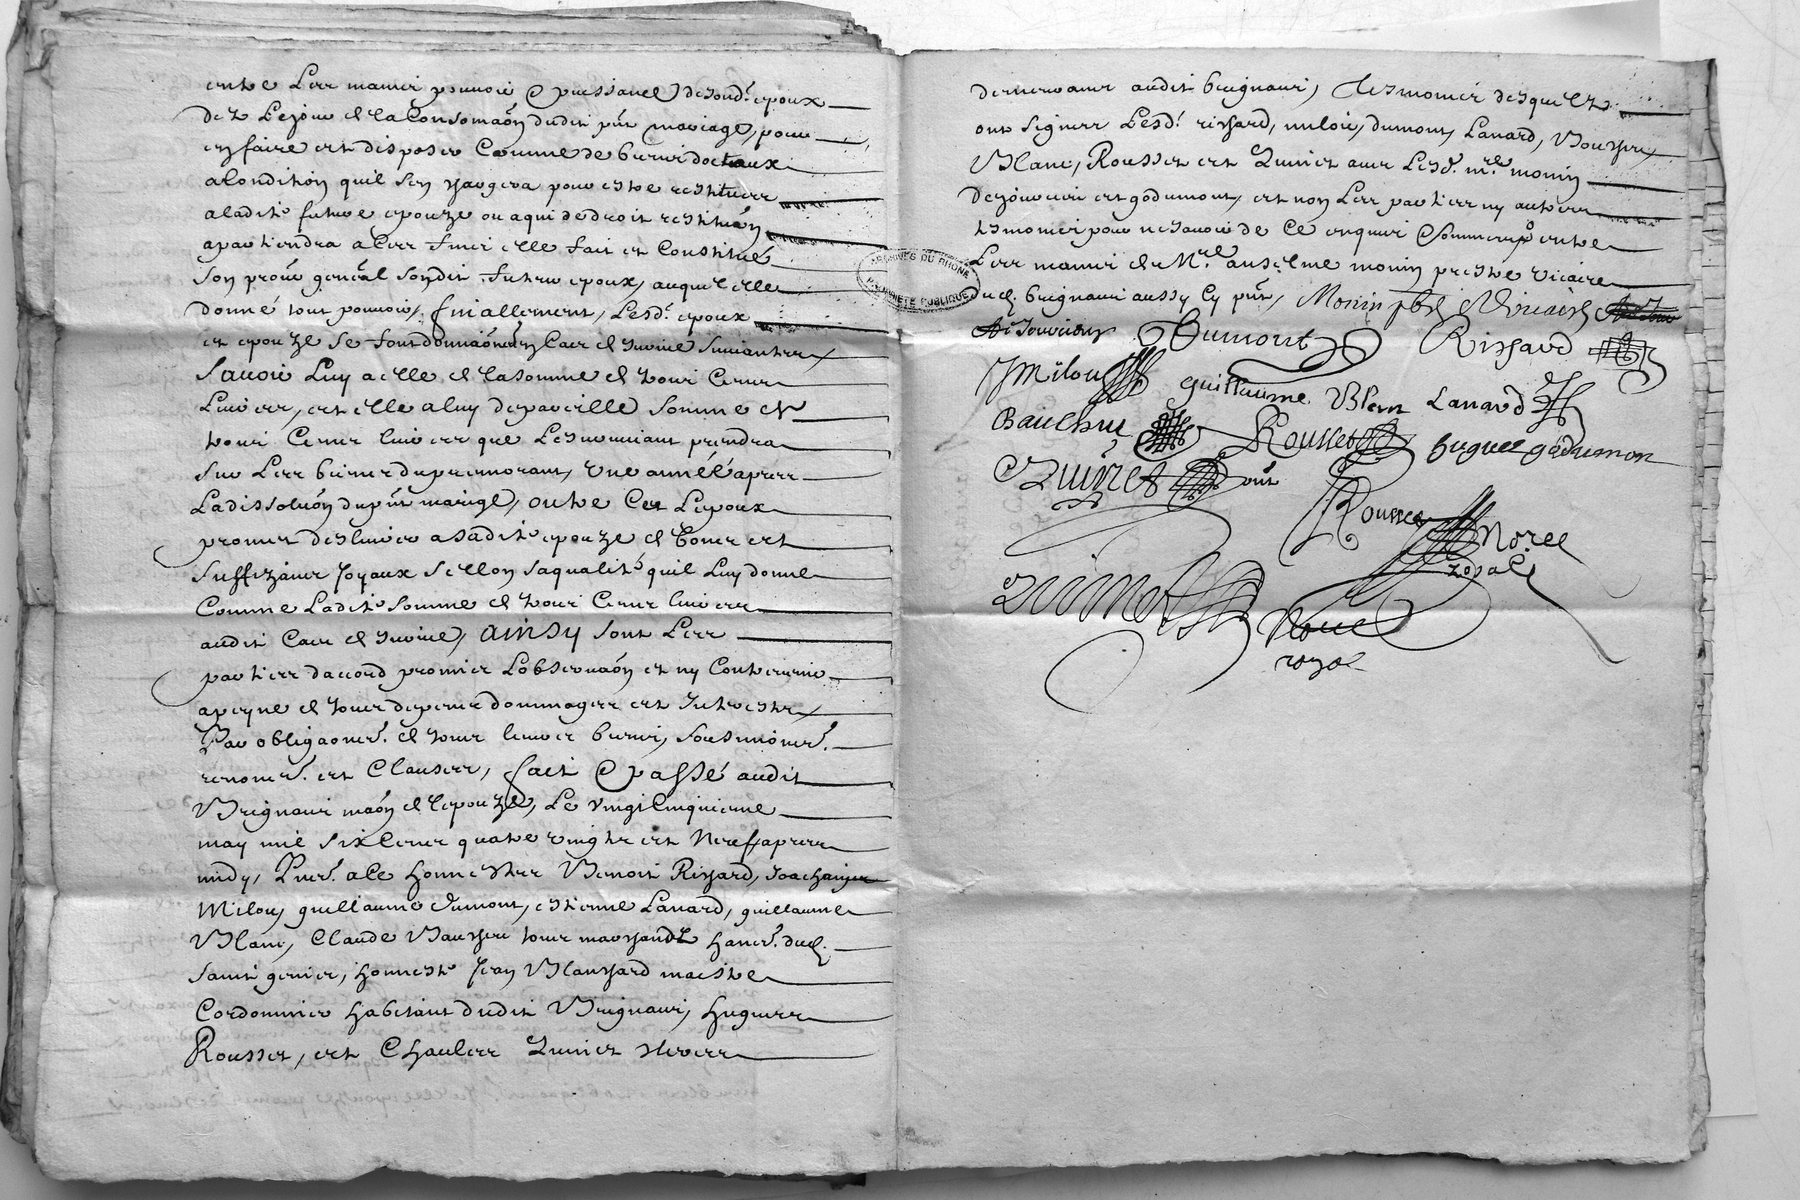 entre Les mains pouvoir & puissance desond. epoux
dez Lejour & la Consomaôn dudit pñt mariage, pour
en faire et disposer Comme de biens doctaux
a Condition quil sen chargera pour estre restitues
a ladite future epouze ou a qui de droit restituôn
apartiendra a Ces fins elle fait et Constitué
son procûr genéral sondit futur epoux, auquel elle
donne tout pouvoir, finallement, Lesd. epoux
et epouze se font donnaôn en Cas de survie suivantes
Savoir Luy a elle de la somme de trois Cens
Livres, et elle a luy de pareille somme de
trois Cens livres que Le survivant prendra
sur Les biens du premorant, Une année apres
La dissoluôn du pñt mariage, outre Ces Lepoux
promet deslivrer a sadite epouze de bones et
suffizans Joyaux sellon sa qualité quil Luy donne
Comme Ladite somme de trois Cens livres
audit Cas de survie, ainsy sont Les
parties d'acord promis Lobservaôn et ny Contrevenir
a peyne de tous despens dommages et Intrests
Par obligaôns. de tous leurs biens, sousmiôns.
renonôns. et Clauses, fait & passé audit
Brignais maôn de lepouze, Le vingt Cinquieme
may mil six Cens quatre vingts et Neuf apres
midy, Pñs. a Ce honnestes Benoit Rissard, Joachain
Milou, guillaume Dumont, estienne Lanard, guillaume
Blanc, Claude Bauchu tous marchandz hants. dud.
saint genis, honneste Jean Blanchard maistre
Cordonnier habitant dudit Brignais, hugues
Rousset, et Charles Quinet Cleres
demeurans audit brignais, tesmoins desquels
ont signes Lesd. rissard, miloux, dumont, Lanard, Bouchu,
Blanc, Rousset et Quinet avec Lesd. mre. monin
dejouvenci et godumont, et non Les parties ny autres
tesmoins pour ne savoir de Ce enquis & sommes entre
Les mains de Mre anselme monin prestre vicaire
dud. brignais aussy Cy pñt, Monin pbre & vicaire
Dumont Rissard
J milou guillaume Blanc Lanard
Bauchu Rousset hugues godumon
Quinet
Rousset Morel
royal
Quinet Morel
royal
ARCHIVES DU RHONE
PROPRIETE PUBLIQUE